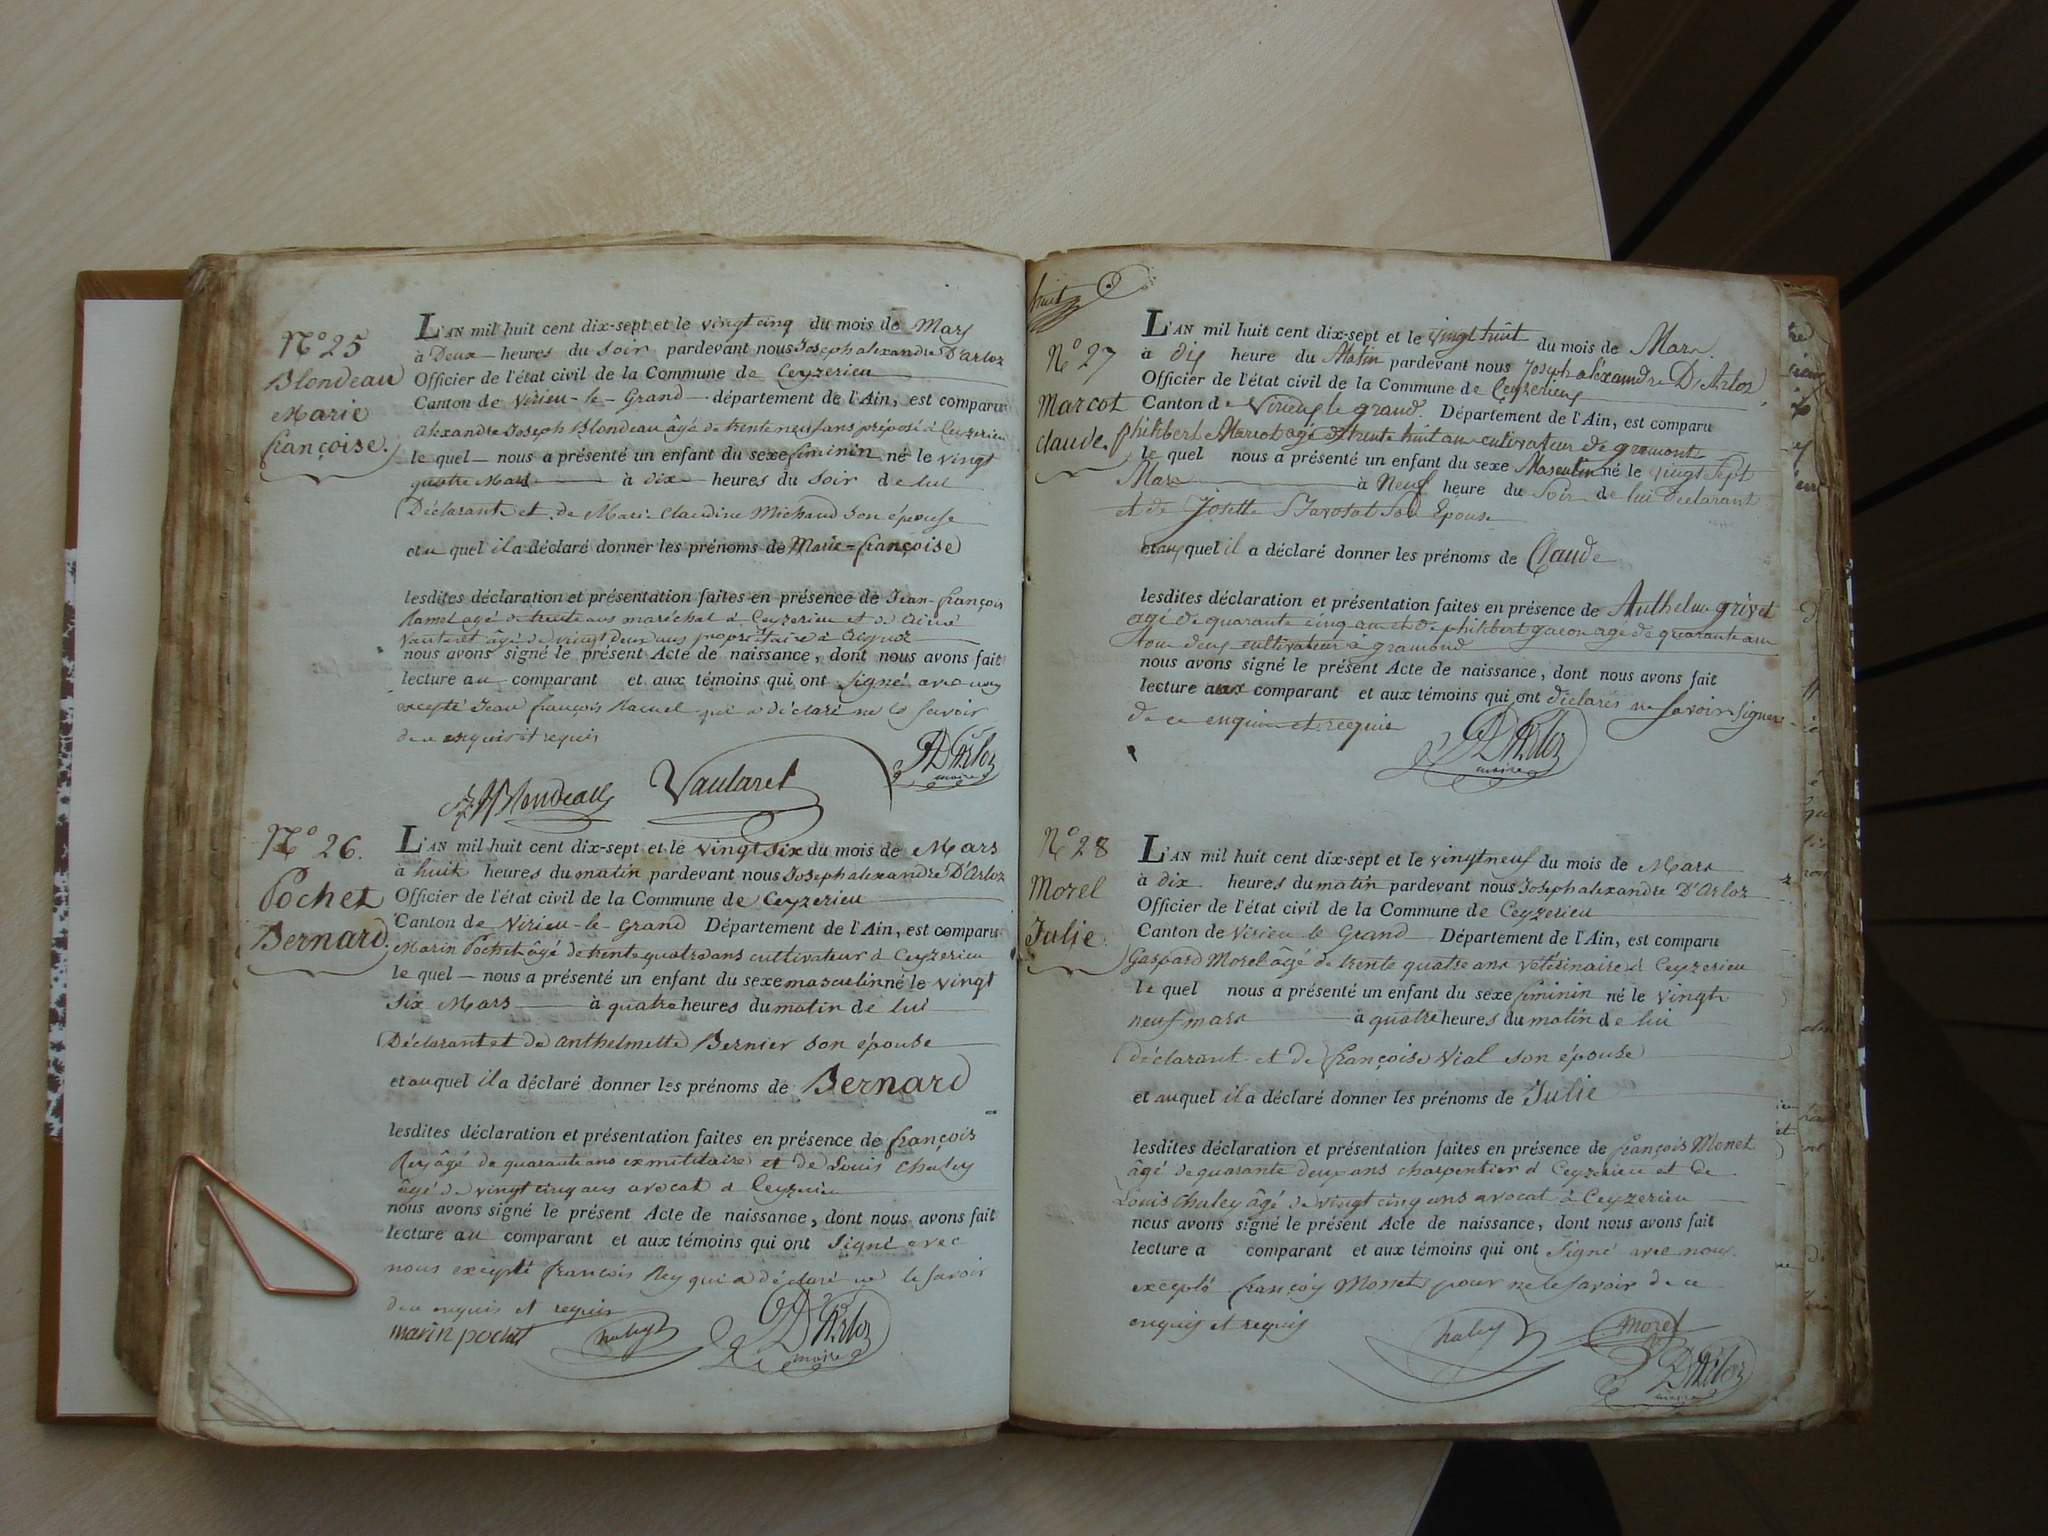 N° 25
Blondeau
Marie
françoise.
L'AN mil huit cent dix-sept et le vingt cinq du mois de Mars
à Deux heures du soir pardevant nous Joseph alexandre D'arloz
Officier de l'état civil de la Commune de Ceyzerieu
Canton de Virieu-le-Grand département de l'Ain, est comparu
Alexandre Joseph Blondeau âgé de trente neuf ans préposé à Ceyzerieu
le quel nous a présenté un enfant du sexe féminin né le vingt
quatre Mars à dix heures du soir de lui
Déclarant et de Marie Claudine Michaud son épouse
et au quel il a déclaré donner les prénoms de Marie=françoise
lesdites déclaration et présentation faites en présence de Jean-françois
Ramel agé de trente ans maréchal à Ceyzerieu et de Aimé
Vautaret âgé de vingt deux ans propriétaire à Aignoz
nous avons signé le présent Acte de naissance, dont nous avons fait
lecture au comparant et aux témoins qui ont signé avec nous
excepté Jean françois Ramel qui a déclaré ne le savoir
de ce enquis et requis
Blondeau Vautaret D'Arloz
maire
N° 26.
Pochet
Bernard.
L'AN mil huit cent dix-sept et le vingt six du mois de Mars
à huit heures du matin pardevant nous Joseph alexandre D'Arloz
Officier de l'état civil de la Commune de Ceyzerieu
Canton de Virieu-le-Grand Département de l'Ain, est comparu
Marin Pochet âgé de trente quatre ans cultivateur à Ceyzerieu
le quel nous a présenté un enfant du sexe masculin né le vingt
six Mars à quatre heures du matin de lui
Déclarant et de anthelmette Bernier son épouse
et auquel il a déclaré donner les prénoms de Bernard
lesdites déclaration et présentation faites en présence de françois
Rey âgé de quarante ans ex militaire et de Louis Chaley
âgé de vingt cinq ans avocat à Ceyzerieu
nous avons signé le présent Acte de naissance, dont nous avons fait
lecture au comparant et aux témoins qui ont signé avec
nous excepté françois Rey qui a déclaré ne le savoir
de ce enquis et requis
marin pochet Chaley D'Arloz
maire
huit
N° 27
Marcot
Claude.
L'AN mil huit cent dix-sept et le vingt huit du mois de Mars
à dix heure du Matin pardevant nous Joseph alexandre D'Arloz
Officier de l'état civil de la Commune de Ceyzerieu
Canton de Virieu le grand. Département de l'Ain, est comparu
philibert Marcot agé de trente huit ans cultivateur de gramont
le quel nous a présenté un enfant du sexe Masculin né le vingt sept
Mars à Neuf heure du Soir de lui déclarant
et de Josette son Epouse
et au quel il a déclaré donner les prénoms de Claude
lesdites déclaration et présentation faites en présence de Anthelme grivet
agé de quarante cinq ans et de philibert gacon agé de quarante ans
tous deux cultivateur à gramond
nous avons signé le présent Acte de naissance, dont nous avons fait
lecture aux comparant et aux témoins qui ont déclarés ne savoir signer
de ce enquis et requis
D'Arloz
maire
N° 28
Morel
Julie.
L'AN mil huit cent dix-sept et le vingt neuf du mois de Mars
à dix heures du matin pardevant nous Joseph alexandre D'Arloz
Officier de l'état civil de la Commune de Ceyzerieu
Canton de Virieu le Grand Département de l'Ain, est comparu
Gaspard Morel âgé de trente quatre ans vétérinaire à Ceyzerieu
le quel nous a présenté un enfant du sexe féminin né le vingt
neuf mars à quatre heures du matin de lui
déclarant et de françoise Vial son épouse
et auquel il a déclaré donner les prénoms de Julie
lesdites déclaration et présentation faites en présence de françois Monet
âgé de quarante deux ans charpentier à Ceyzerieu et de
Louis Chaley âgé de vingt cinq ans avocat à Ceyzerieu
nous avons signé le présent Acte de naissance, dont nous avons fait
lecture a comparant et aux témoins qui ont signé avec nous
excepté françois Monet pour ne le savoir de ce
enquis et requis
Chaley Morel
D'Arloz
maire